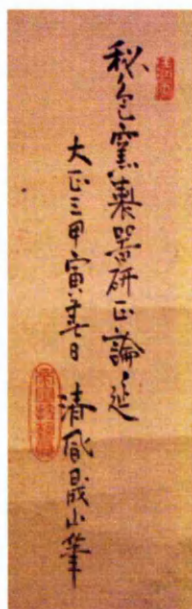 秘色窯製器研正論延
大正三甲寅春日 清風晟山筆